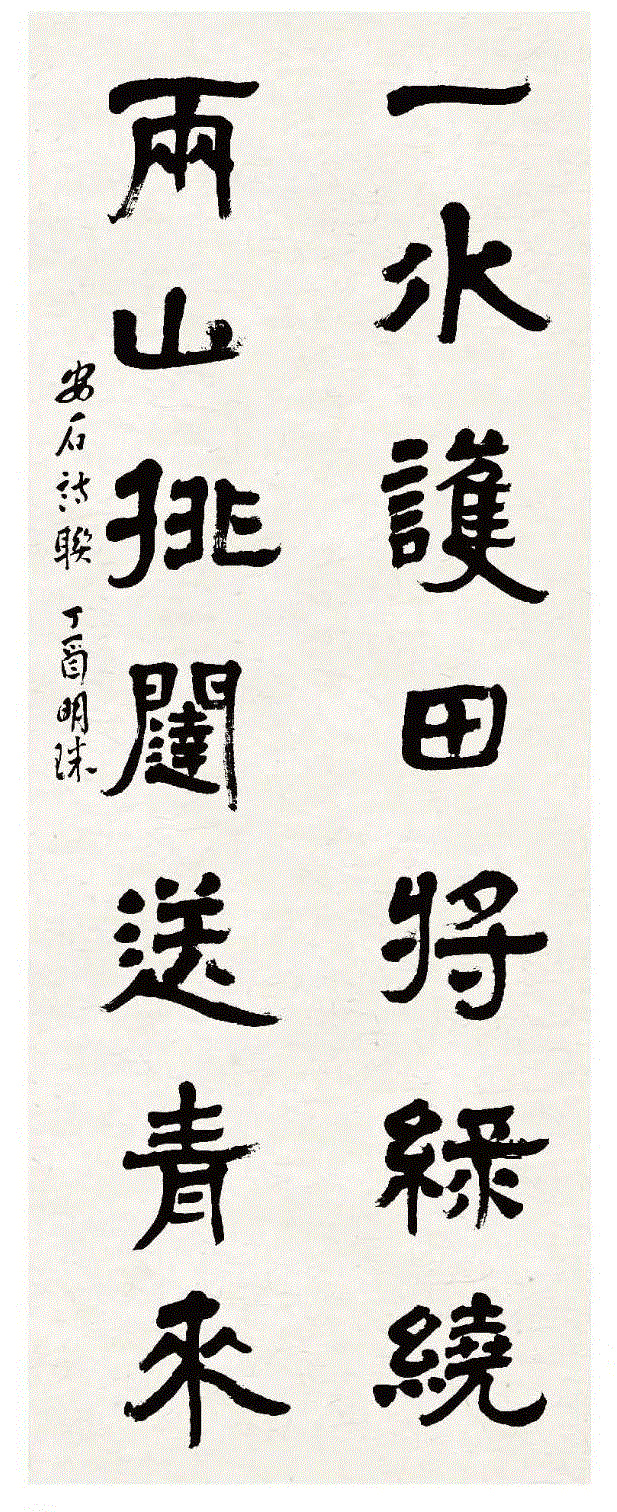 一水護田將綠繞
兩山排闥送青來
安石詩聯 丁酉明珠